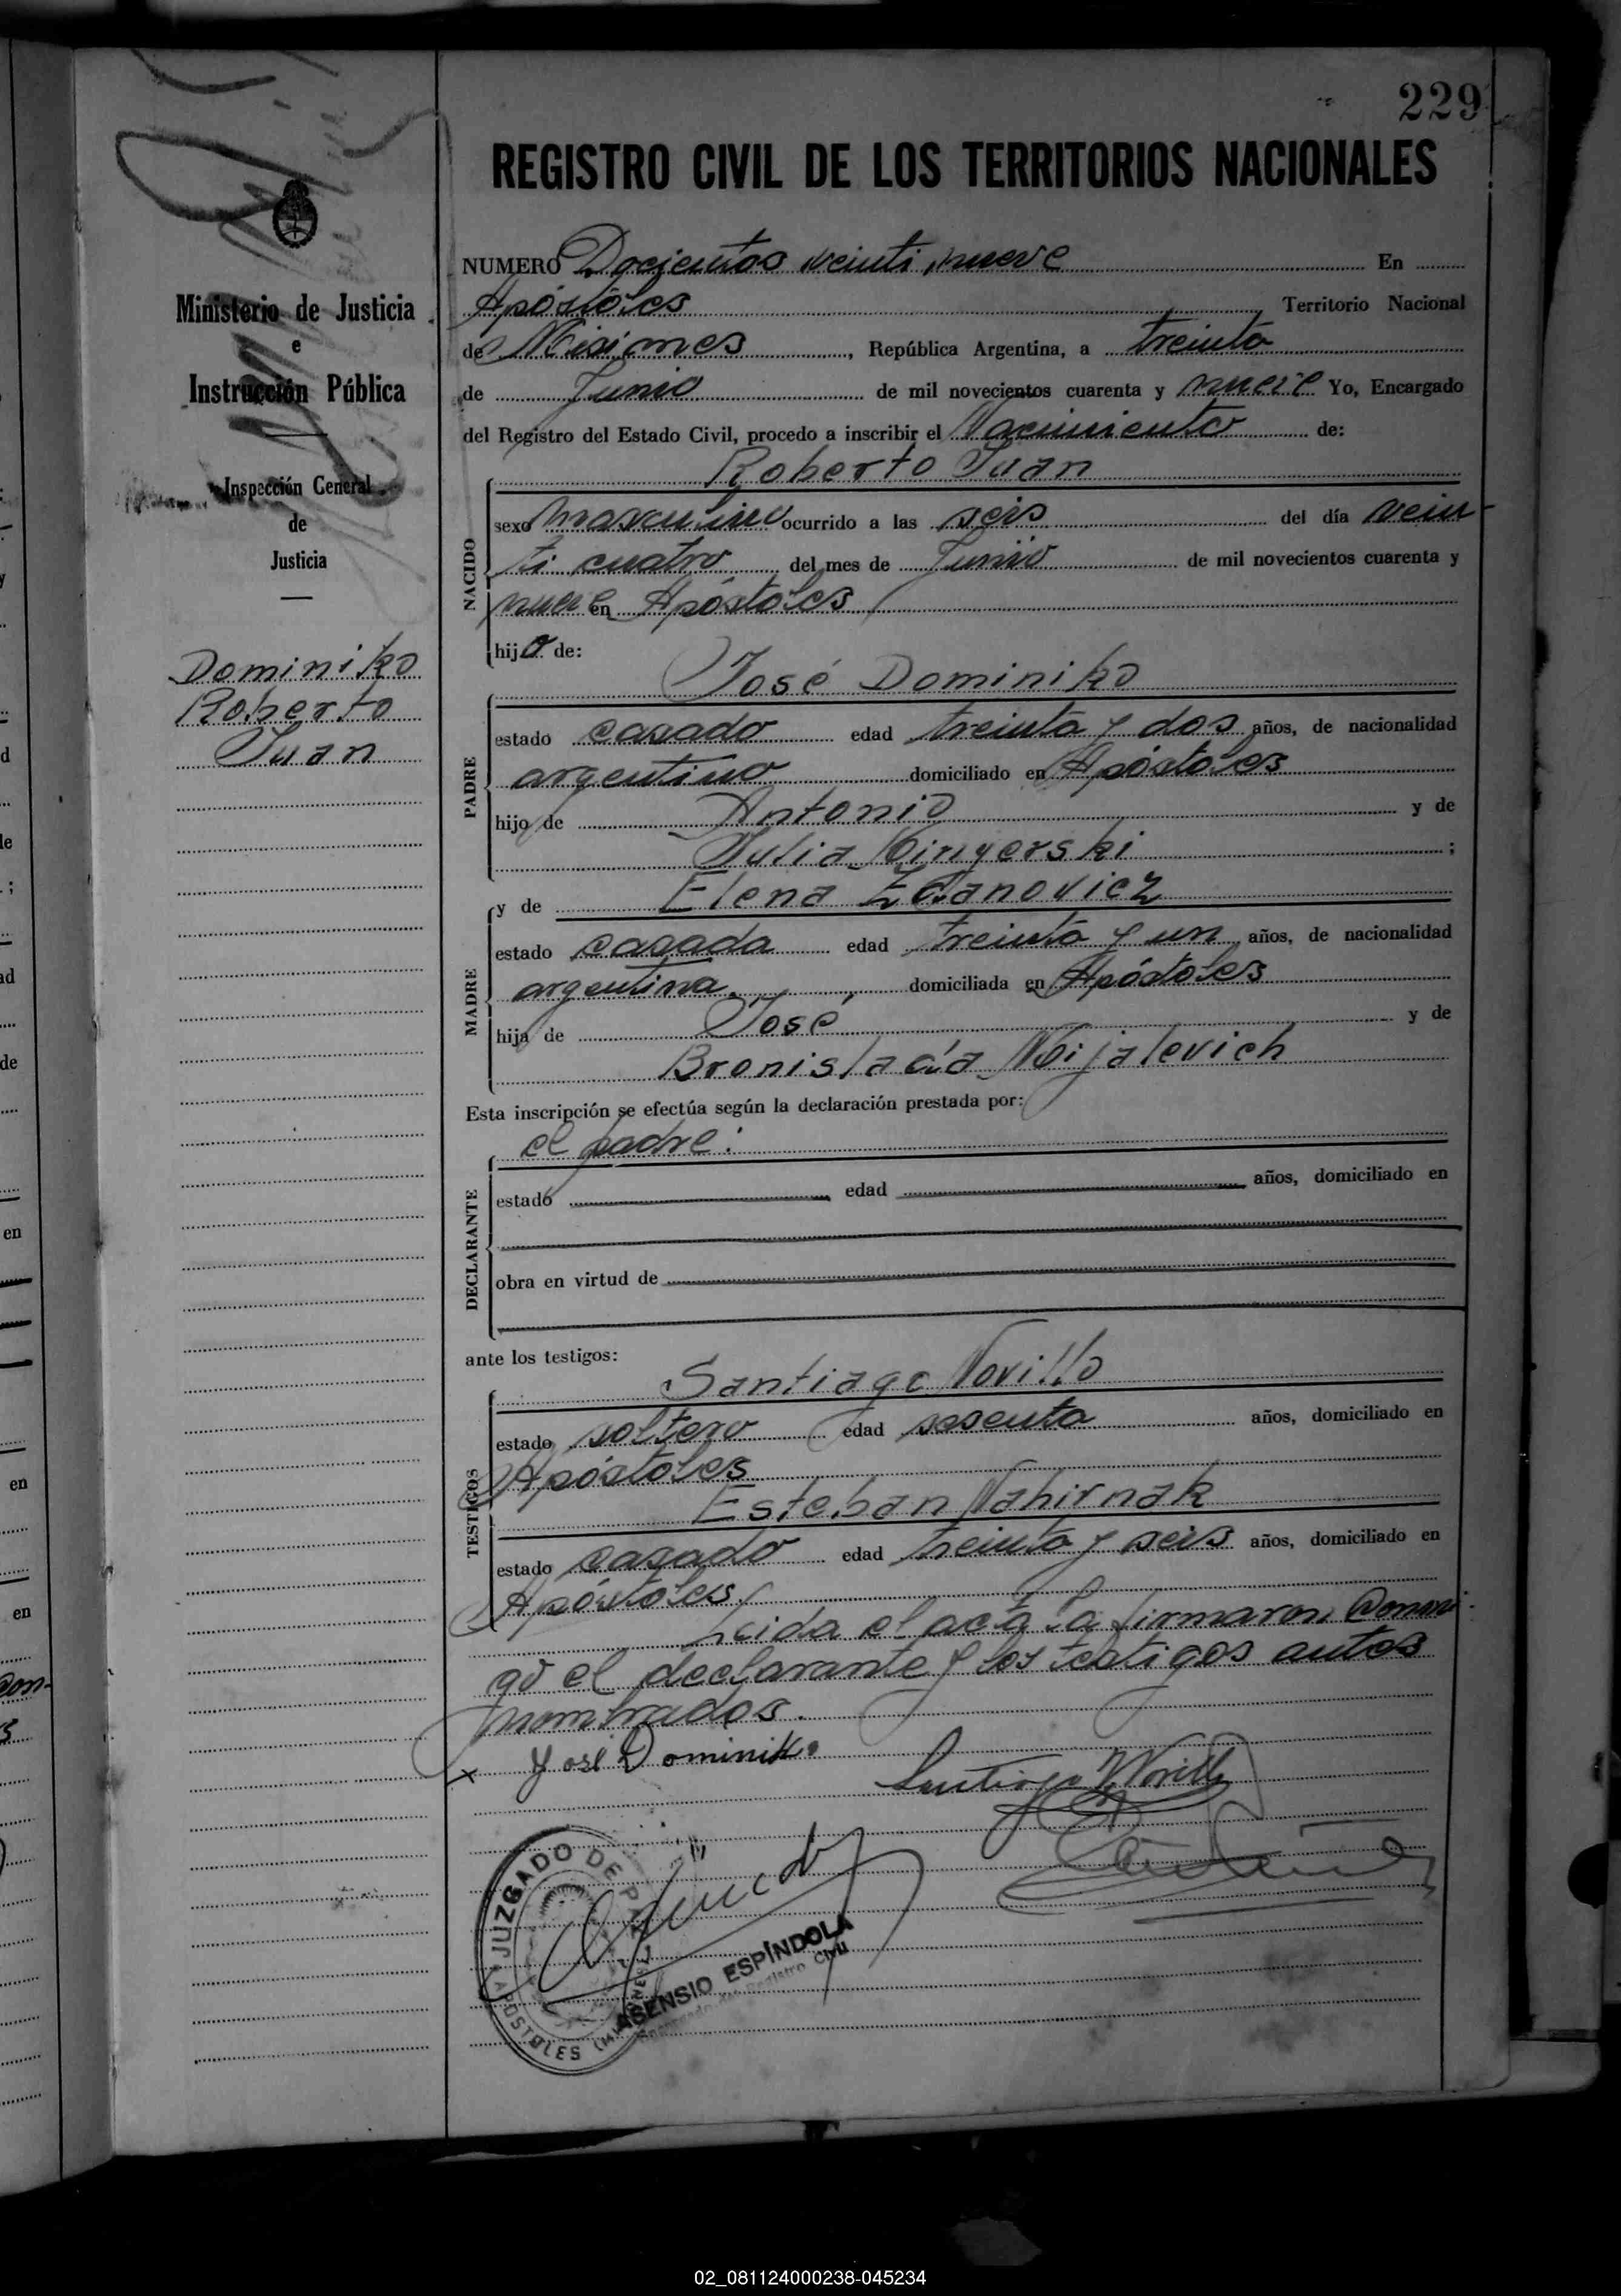 229
REGISTRO CIVIL DE LOS TERRITORIOS NACIONALES
Ministerio de Justicia
e
Instrucción Pública
Inspección General
de
Justicia
Dominiko
Roberto
Juan
NUMERO Docientos veinti nueve En
Apóstoles Territorio Nacional
de Misiones, República Argentina, a treinta
de Junio de mil novecientos cuarenta y nueve Yo, Encargado
del Registro del Estado Civil, procedo a inscribir el Nacimiento de:
Roberto Juan
NACIDO
sexo masculino ocurrido a las seis del día vein-
ti cuatro del mes de Junio de mil novecientos cuarenta y
nueve en Apóstoles
hijo de:
José Dominiko
PADRE
estado casado edad treinta y dos años, de nacionalidad
argentino domiciliado en Apóstoles
hijo de Antonio y de
Julia ;
y de Elena Zdanovicz
MADRE
estado casada edad treinta y un años, de nacionalidad
argentina domiciliada en Apóstoles
hija de José y de
Mijalevich
Esta inscripción se efectúa según la declaración prestada por:
el padre:
DECLARANTE
estado edad años, domiciliado en
obra en virtud de
ante los testigos:
Santiago Novillo
TESTIGOS
estado soltero edad sesenta años, domiciliado en
Apóstoles
Esteban Nahirnak
estado casado edad treinta y seis años, domiciliado en
Apóstoles.
Leida el acta la firmaron conmi-
go el declarante y los testigos antes
nombrados.
x José Dominiko
Santiago Novillo
JUZGADO DE PAZ
APOSTOLES (MISIONES)
ASENSIO ESPÍNDOLA
Encargado del Registro Civil
en
en
en
de
con-
02_081124000238-045234